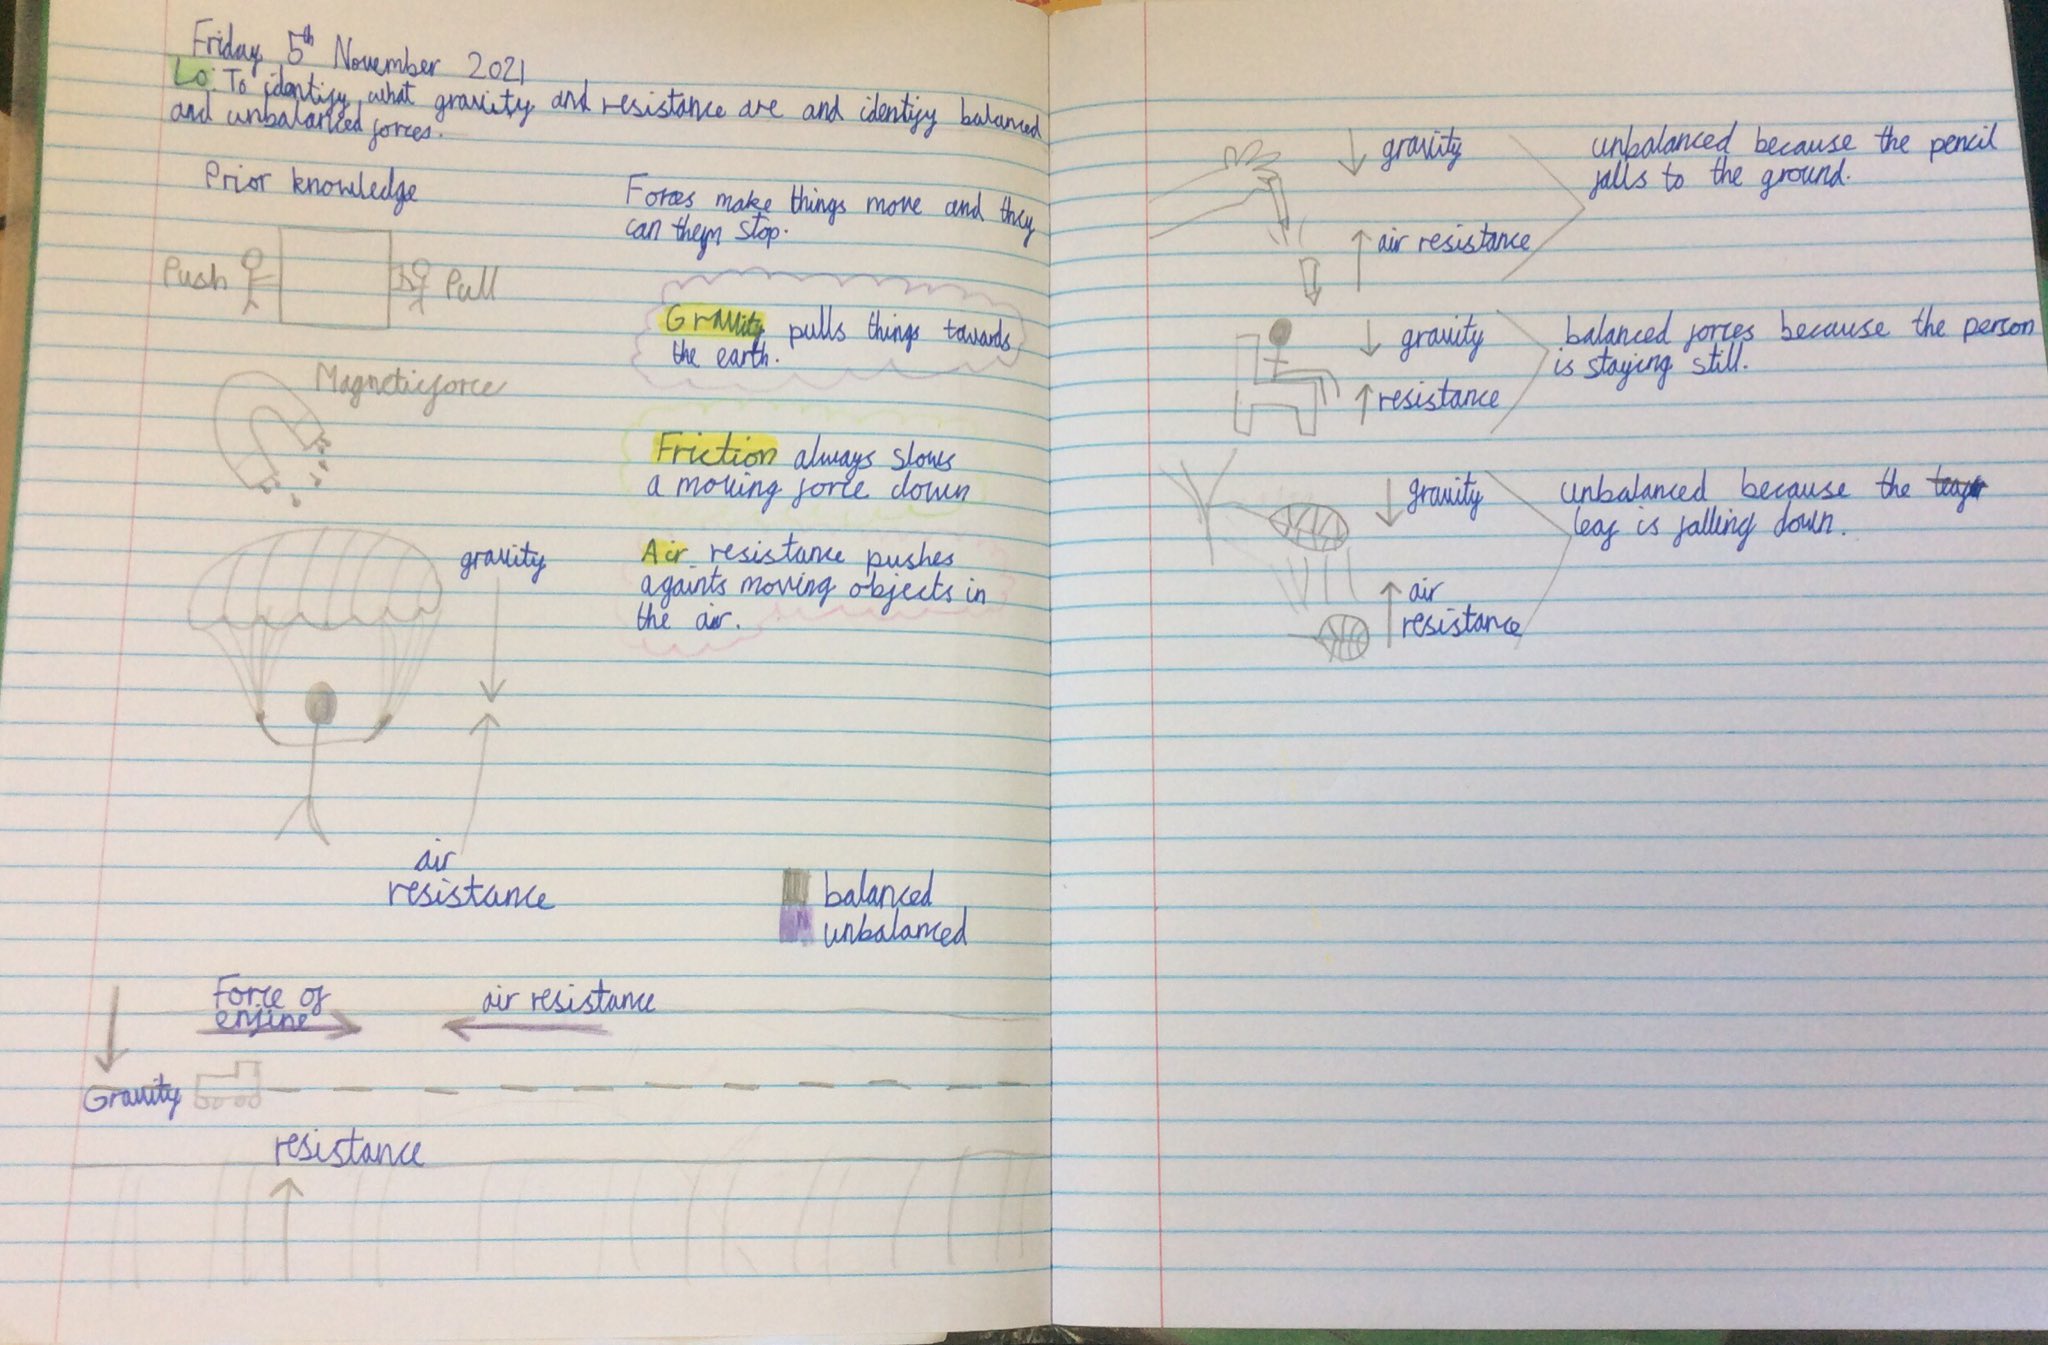 Friday 5th November 2021
Lo: To identify what gravity and resistance are and identify balanced
and unbalanced forces.
Prior knowledge
Push
Pull
Magnetic force
gravity
air
resistance
Forces make things move and they
can them stop.
Gravity pulls things towards
the earth.
Friction always slows
a moving force down
Air resistance pushes
againts moving objects in
the air.
balanced
unbalanced
Force of
enjine
air resistance
Gravity
resistance
gravity
air resistance
unbalanced because the pencil
falls to the ground.
gravity
resistance
balanced forces because the person
is staying still.
gravity
air
resistance
unbalanced because the
leaf is falling down.